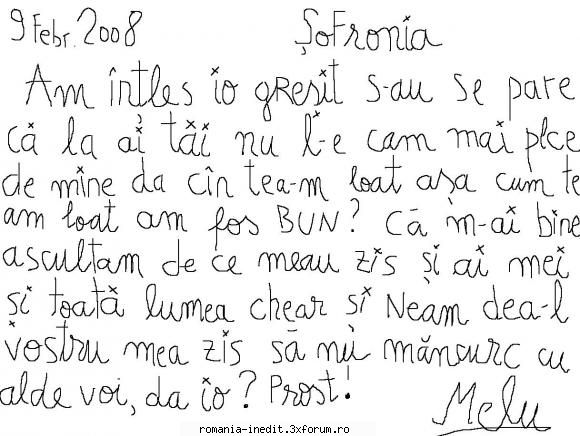 9 Febr. 2008 ŞoFronia
Am întles io gResit s-au se pare
că la ai tăi nu l-e cam mai plce
de mine da cîn tea-m loat aşa cum te
am loat am fos BUN? Că m-ai bine
ascultam de ce meau zis şi ai mei
şi toată lumea chear si Neam dea-l
vostru mea zis să nu măncurc cu
alde voi, da io? Prost!
Melu
romania-inedit.3xforum.ro